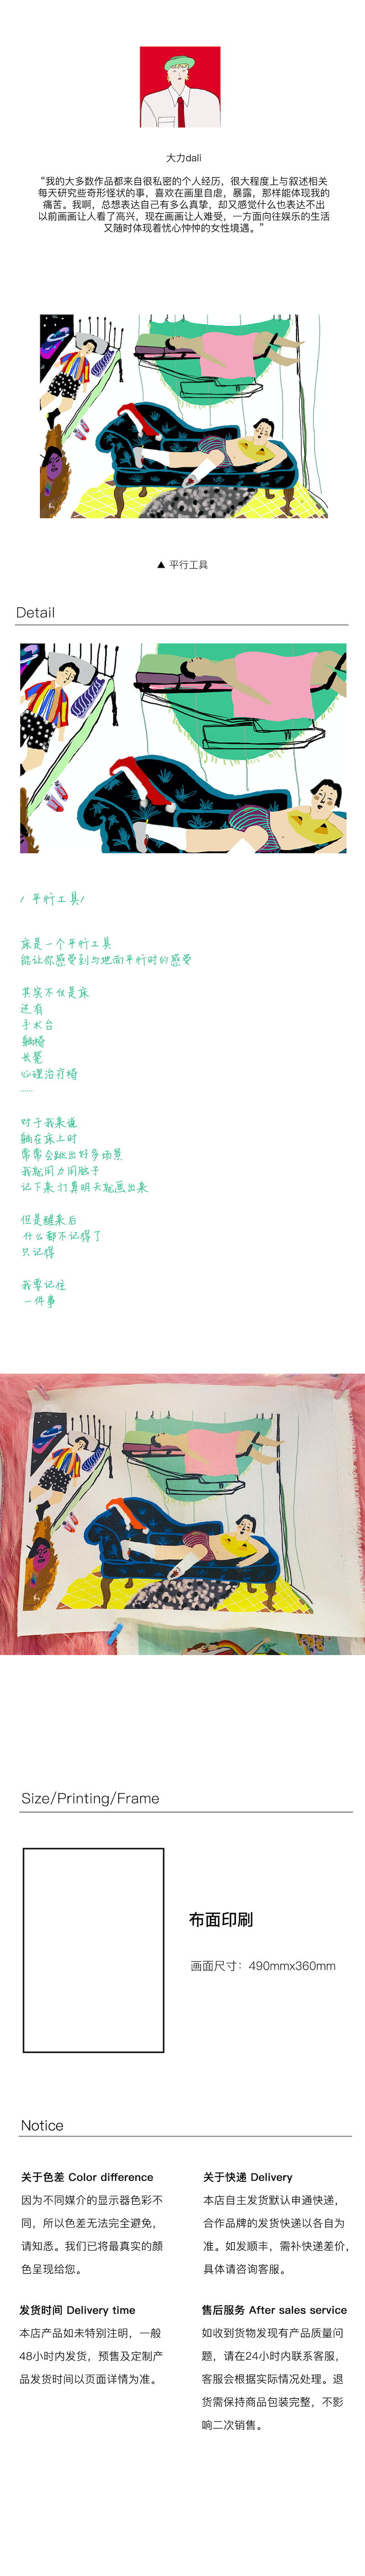 大力dali
“我的大多数作品都来自很私密的个人经历，很大程度上与叙述相关
每天研究些奇形怪状的事，喜欢在画里自虐，暴露，那样能体现我的
痛苦。我啊，总想表达自己有多么真挚，却又感觉什么也表达不出
以前画画让人看了高兴，现在画画让人难受，一方面向往娱乐的生活
又随时体现着忧心忡忡的女性境遇。”
▲ 平行工具
Detail
/ 平行工具/
床是一个平行工具
能让你感受到与地面平行时的感受
其实不仅是床
还有
手术台
躺椅
长凳
心理治疗椅
......
对于我来说
躺在床上时
常常会跳出好多场景
我就用力用脑子
记下来 打算明天就画出来
但是醒来后
什么都不记得了
只记得
我要记住
一件事
Size/Printing/Frame
布面印刷
画面尺寸：490mmx360mm
Notice
关于色差 Color difference
因为不同媒介的显示器色彩不
同，所以色差无法完全避免，
请知悉。我们已将最真实的颜
色呈现给您。
关于快递 Delivery
本店自主发货默认申通快递，
合作品牌的发货快递以各自为
准。如发顺丰，需补快递差价，
具体请咨询客服。
发货时间 Delivery time
本店产品如未特别注明，一般
48小时内发货，预售及定制产
品发货时间以页面详情为准。
售后服务 After sales service
如收到货物发现有产品质量问
题，请在24小时内联系客服，
客服会根据实际情况处理。退
货需保持商品包装完整，不影
响二次销售。